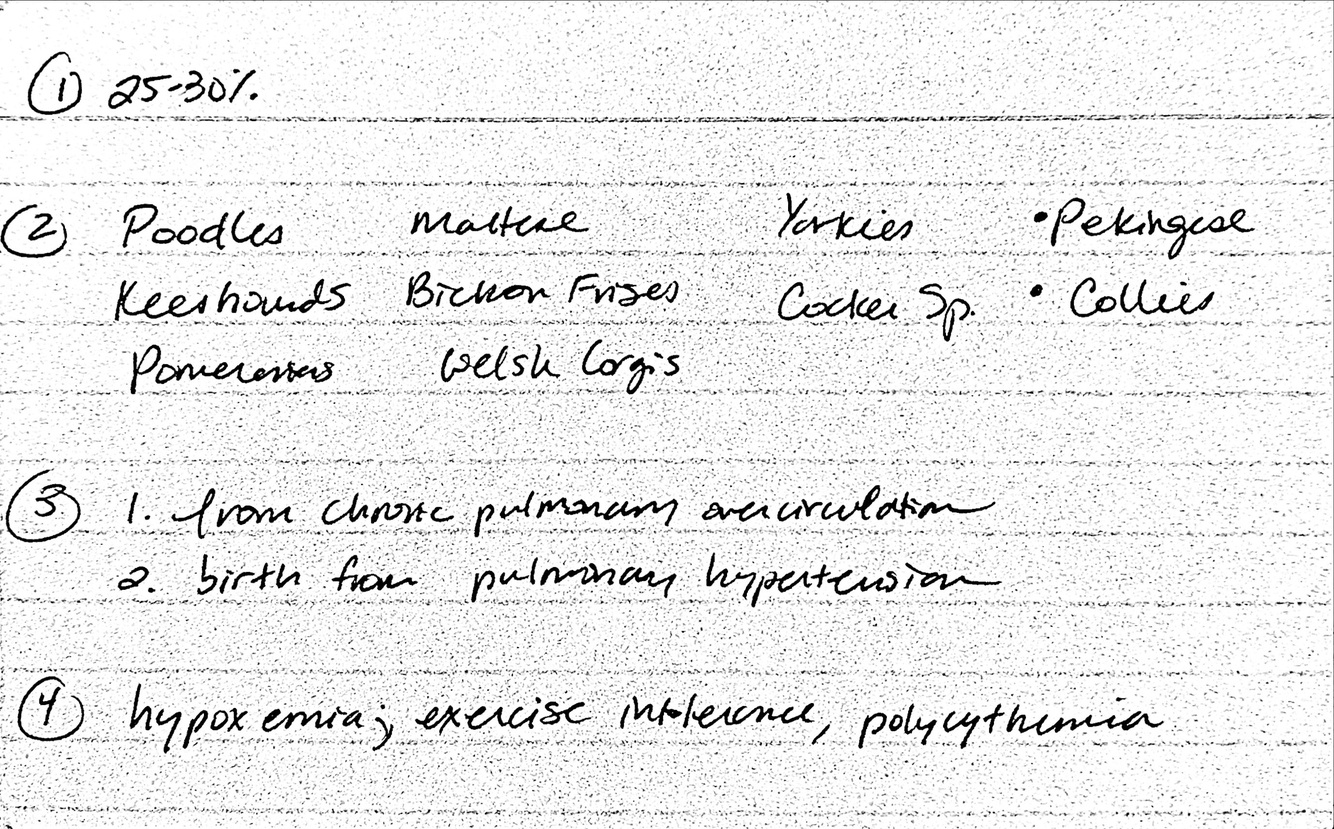 ① 25-30%.
② Poodles Maltese Yorkies • Pekingese
Keeshounds Bichon Frises Cocker Sp. • Collies
Pomeranians Welsh Corgis
③ 1. from chronic pulmonary overcirculation
2. birth from pulmonary hypertension
④ hypoxemia; exercise intolerence, polycythemia